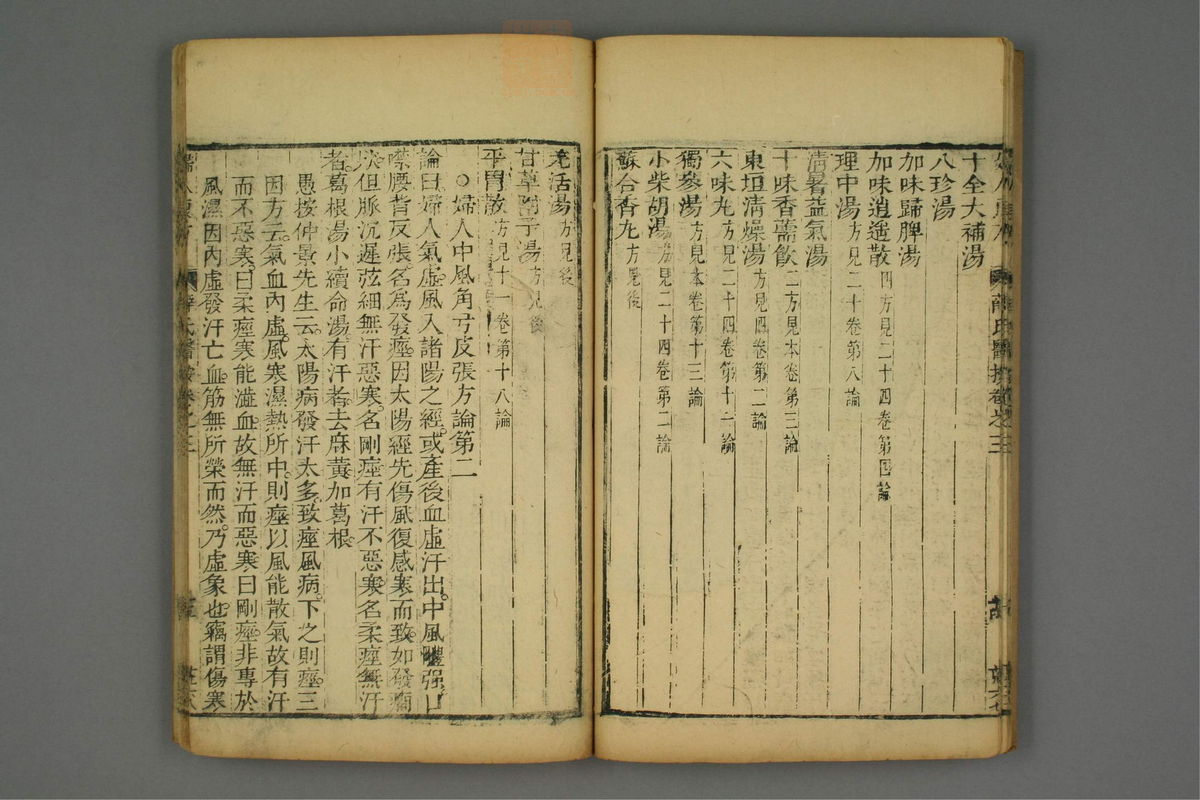 薛氏醫按卷之三
十全大補湯
八珍湯
加味歸脾湯
加味逍遙散四方見二十四卷第四論
理中湯方見二十卷第八論
清暑益氣湯
十味香薷飲二方見本卷第三論
東垣清燥湯方見四卷第二論
六味丸方見二十四卷第十一論
獨參湯方見本卷第十三論
小柴胡湯方見二十四卷第二論
蘇合香丸方見後
羌活湯方見後
甘草附子湯方見後
平胃散方見十一卷第十八論
○婦人中風角弓反張方論第二
論曰婦人氣虛風入諸陽之經或產後血虛汗出中風體强口
噤腰背反張名為發痙因太陽經先傷風復感寒而致如發癇
狀但脈沉遲弦細無汗惡寒名剛痙有汗不惡寒名柔痙無汗
者葛根湯小續命湯有汗者去麻黃加葛根
愚按仲景先生云太陽病發汗太多致痙風病下之則痙三
因方云氣血內虛風寒濕熱所中則痙以風能散氣故有汗
而不惡寒曰柔痙寒能澁血故無汗而惡寒曰剛痙非專於
風濕因內虛發汗亡血筋無所榮而然乃虛象也竊謂傷寒
薛氏醫按卷之三